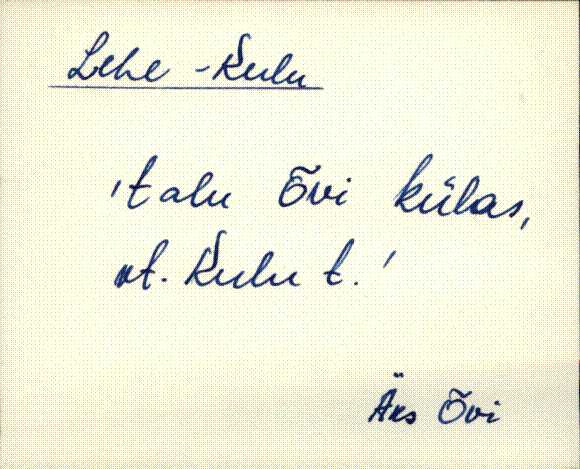 Lehe-Kulu
'talu Õvi külas,
vt. Kulu t.'
Äks Õvi